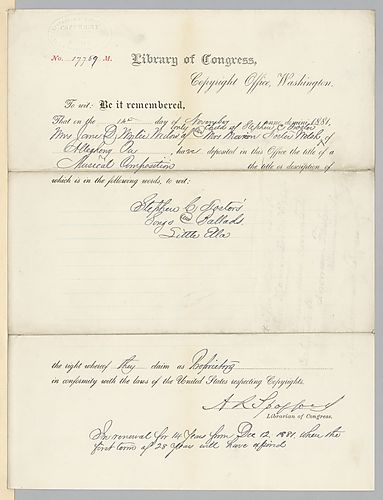 COPYRIGHT
No. 17769 M. Library of Congress,
Copyright Office, Washington.
To wit: Be it remembered,
That on the 14th day of November anno domini 1881.
Mrs Jane D. Wiley Widow & only child of Stephen C. Foster
Mrs Marion Foster Welsh of
Allegheny Pa have deposited in this Office the title of a
Musical Composition the title or description of
which is in the following words, to wit:
Stephen C Foster's
Songs and Ballads.
Little Ella
the right whereof they claim as Proprietors
in conformity with the laws of the United States respecting Copyrights.
A R Spofford
Librarian of Congress.
In renewal for 14 Years from Dec 12, 1881, when the
first term of 28 Years will have expired